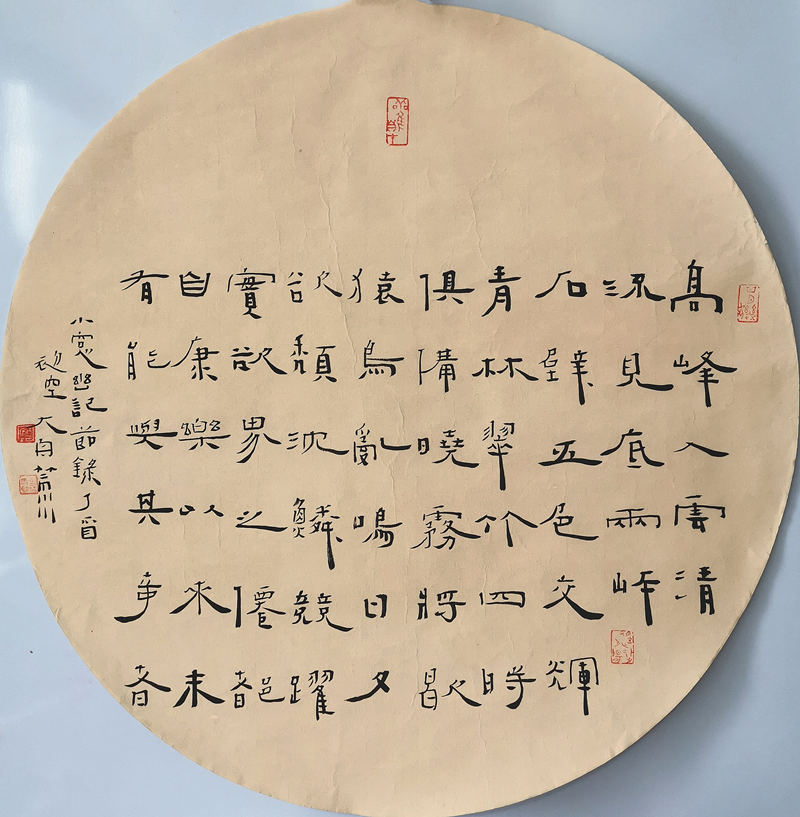 高峰入雲清
流見底兩岸
石壁五色交輝
青林翠竹四時
俱備曉霧將歇
猿鳥亂鳴日夕
欲頹沈鱗競躍
實欲界之僊都
自康樂以來未
有能與其争者
小窻幽記節錄丁酉
空大川